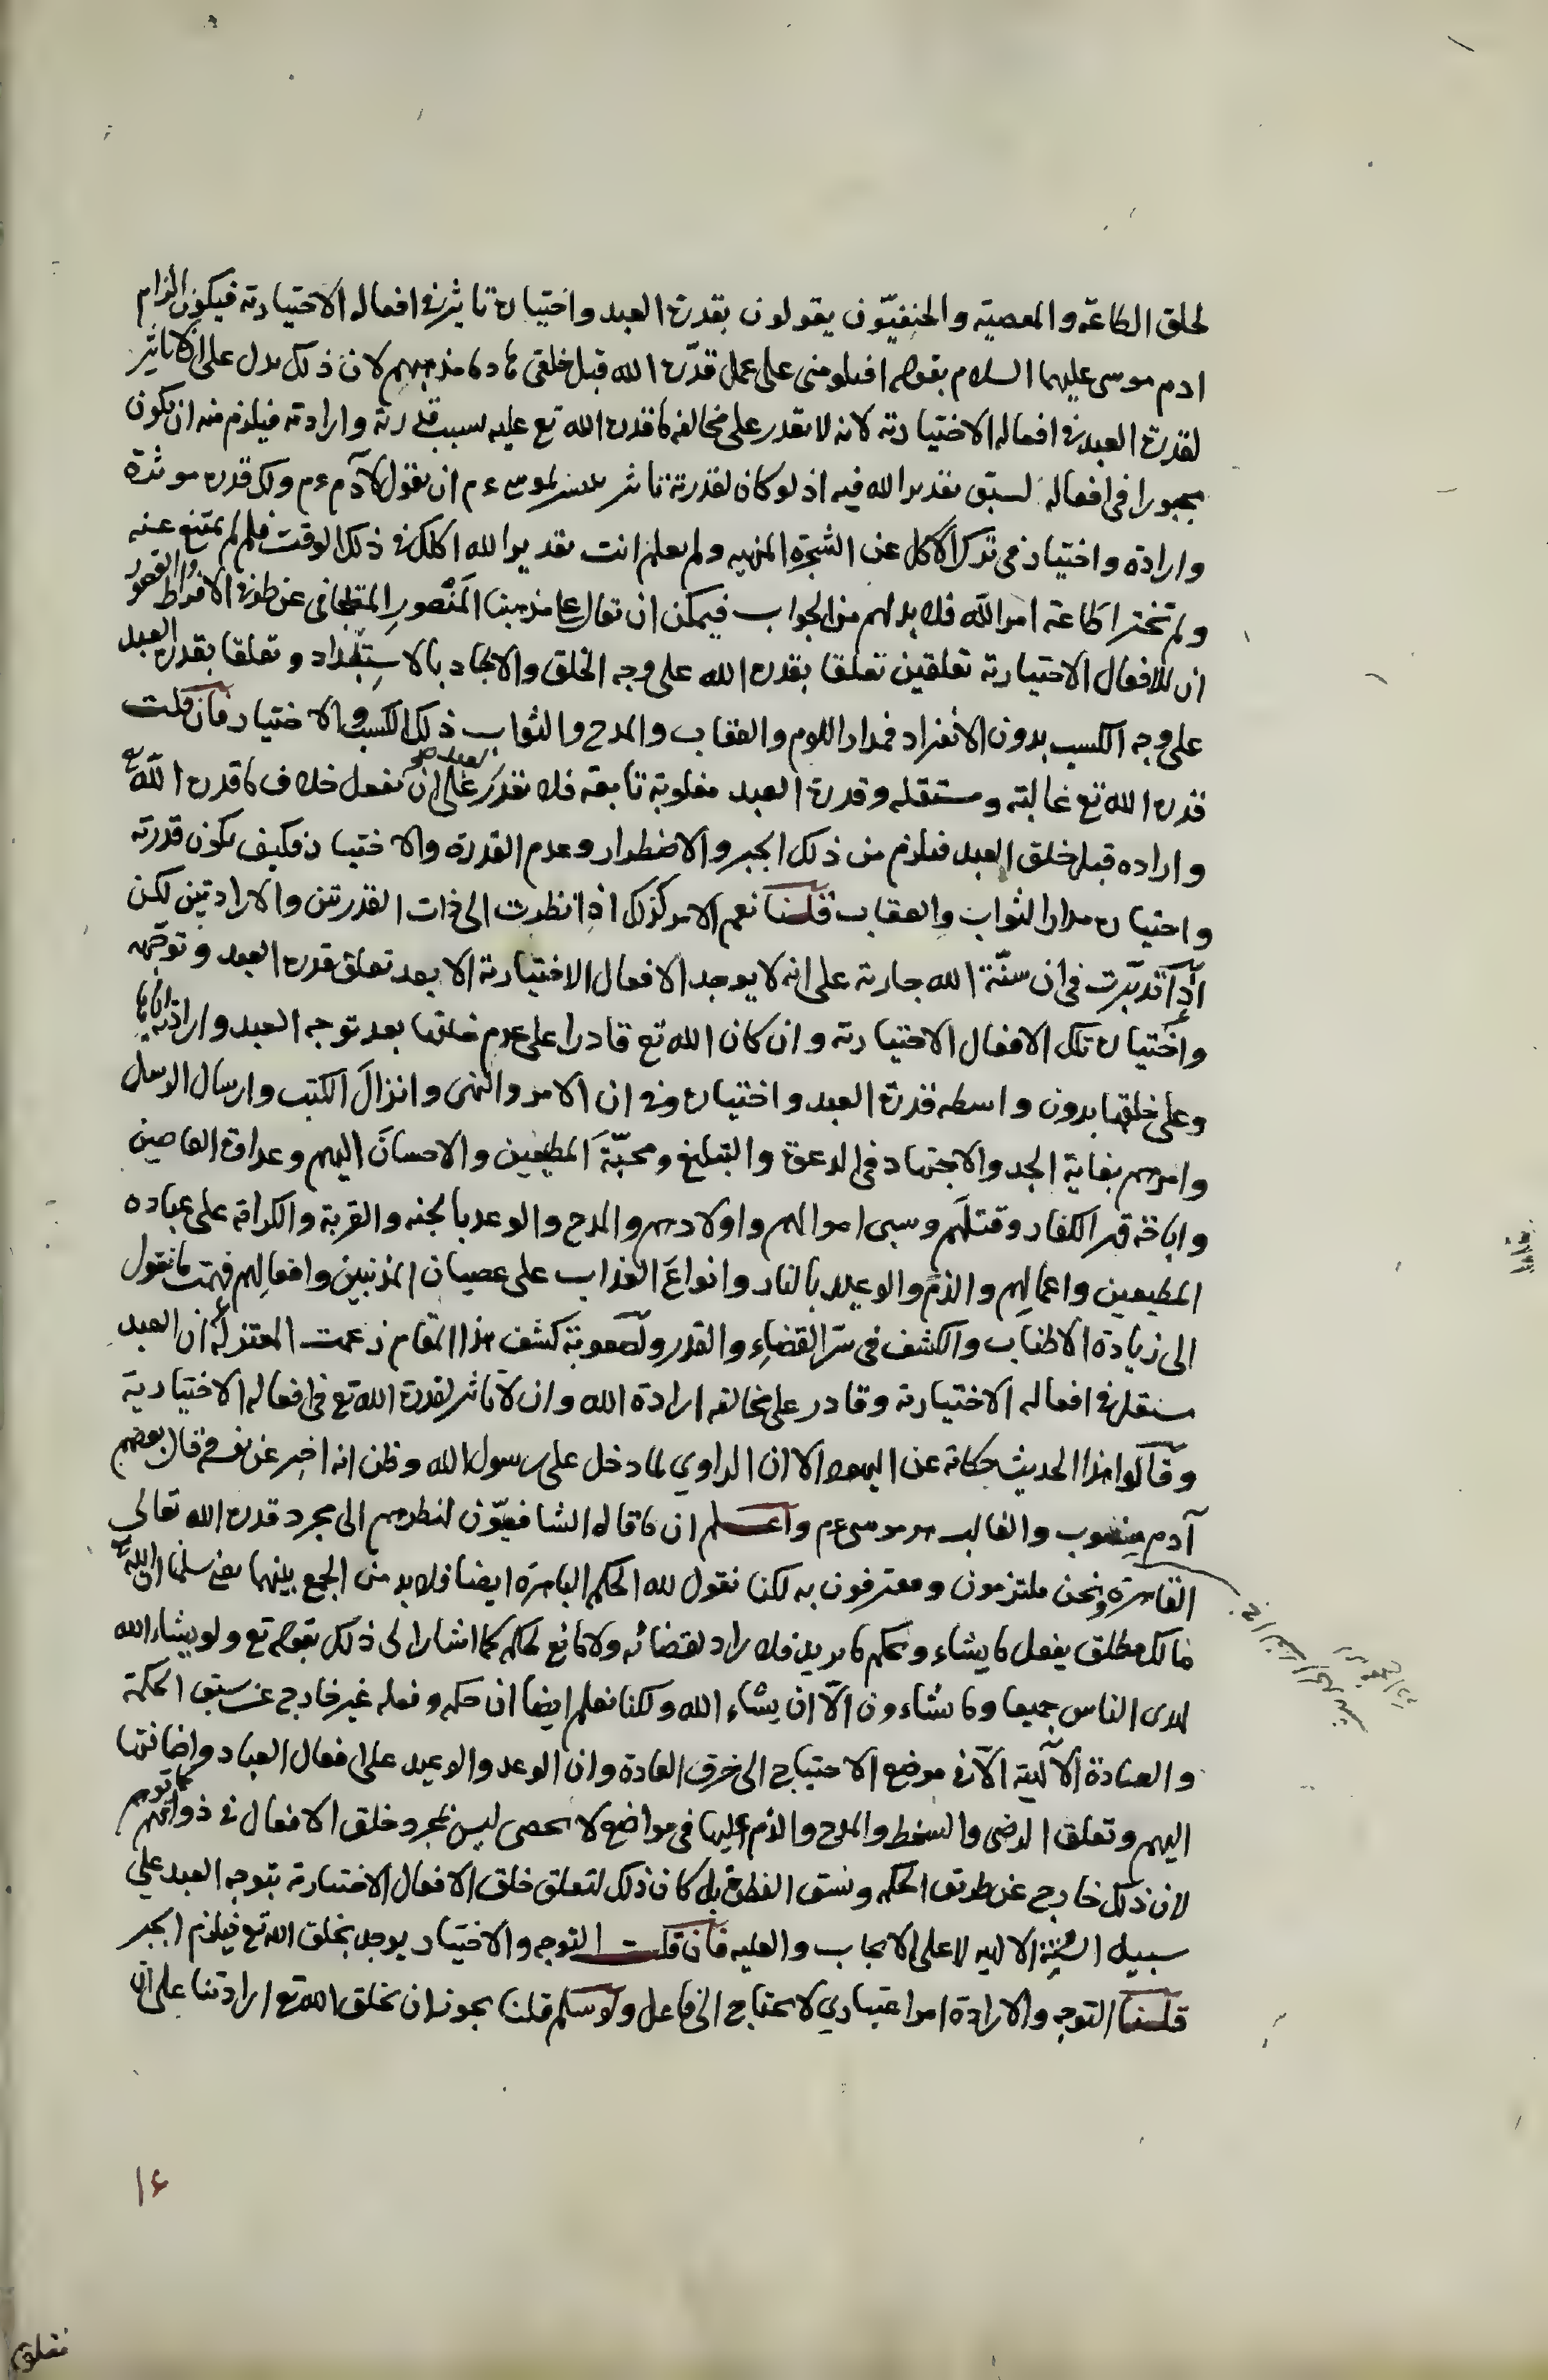 لخلق الطاعة والمعصية والحنفيّون يقولون بقدرة العبد واختياره تاثير في افعاله الاختيارية فيكون الزام
ادم موسى عليهما السلام بقوله افتلومني على عمل قدّره الله قبل خلقي هادما مذهبهم لان ذلك يدل على ان لا تاثير
لقدرة العبد في افعاله الاختيارية لانه لا يقدر على مخالفة ما قدره الله تع عليه بسبب قدرته وارادته فيلزم منه ان يكون
مجبورا في افعاله لسبق تقدير الله فيه اذ لو كان لقدرته تاثير لموسى ءم ان يقول لآدم ءم ولك قدرة موثرة
وارادة واختيار في ترك الاكل عن الشجرة المنهيه ولم تعلم انت تقدير الله اكلك في ذلك الوقت فلم لم تمتنع عنه
ولم تختر اطاعة امر الله فلا بد لهم من الجواب فيمكن ان يقال على مذهبنا المَنْصورِ المتجافي عن طرفي الافراط والقصور
ان للافعال الاختيارية تعلقين تعلقا بقدرة الله على وجه الخلق والايجاد بالاستِبْداد وتعلقا بقدرة العبد
على وجه الكسب بدون الانفراد فمدار اللوم والعقاب والمدح والثواب ذلك الكسب والاختيار فان قلت
قدرة الله تع غالبة ومستقله وقدرة العبد مغلوبة تابعة فلا يقدر العبد على ان يفعل خلاف ما قدره الله تع
واراده قبل خلق العبد فيلزم من ذلك الجبر والاضطرار وعدم القدرة والاختيار فكيف يكون قدرته
واختياره مدار الثواب والعقاب قلنا نعم الامر كذلك اذا نظرت الى ذات القدرتين والارادتين لكن
اذا تدبّرت في ان سنّة الله جارية على انه لا يوجد الافعال الاختيارية الا بعد تعلق قدرة العبد وتوجّهه
واختياره تلك الافعال الاختيارية وان كان الله تع قادرا على عدم خلقها بعد توجه العبد وارادته اياها
وعلى خلقها بدون واسطه قدرة العبد واختياره وفي ان الامر والنهى وانزالَ الكتب وارسال الرسل
وامرهم بغاية الجد والاجتهاد في الدعوة والتبليغ ومحبّةَ المطيعين والاحسانَ اليهم وعداوة العاصين
واباحة قهر الكفار وقتلَهم وسبى اموالهم واولادهم والمدح والوعد بالجنه والقربة والكرامة على عباده
المطيعين واعمالِهم والذمَّ والوعيد بالنار وانواعَ العذاب على عصيان المذنبين وافعالِهم فهمت ما نقول
الى زيادة الاطناب والكشف في سرّ القضاءِ والقدر ولصعوبة كشف هذا المقام زعمت المعتزلة ان العبد
مستقل في افعاله الاختيارية وقادر على مخالفه ارادة الله وان لا تاثير لقدرة الله تع في افعاله الاختيارية
وقالوا هذا الحديث حكاية عن اليهود الا ان الراوي لما دخل على رسول الله وظن انه اخبر عن نفسه قال بعضهم
آدم منصوب والغالب هو موسى ءم واعلم ان ما قاله الشافعيّون لنظرهم الى مجرد قدرة الله تعالى
القاهرة ونحن ملتزمون ومعترفون به لكنا نقول لله الحكم الباهرة ايضا فلا بد من الجمع بينهما يعني سلمنا ان الله تع
مالك مطلق يفعل ما يشاء ويحكم ما يريد فلا راد لقضائه ولا مانع لحكمه كما اشار الى ذلك بقوله تع ولو يشاء الله
لهدى الناس جميعا وما تشاءون الّا ان يشاء الله ولكنا نعلم ايضا ان حكمه وفعله غير خارج عن سبق الحكمة
والعادة الآلٰهية الّا في موضع الاحتياج الى خرق العادة وان الوعد والوعيد على افعال العباد واضافتها
اليهم وتعلق الرضى والسخط والمدح والذم اليها في مواضع لا تحصى ليس لمجرد خلق الافعال في ذواتهم كما توهم
لان ذلك خارج عن طريق الحكمه ونسق الفطرة بل كان ذلك لتعلق خلق الافعال الاختيارية بتوجه العبد على
سبيل السُنّةِ الالهيه لا على الايجاب والعليه فان قلت التوجه والاختيار يوجد بخلق الله تع فيلزم الجبر
قلنا التوجه والارادة امر اعتباري لا يحتاج الى فاعل ولو سلم قلنا يجوز ان يخلق الله تع ارادتنا على ان
١٤